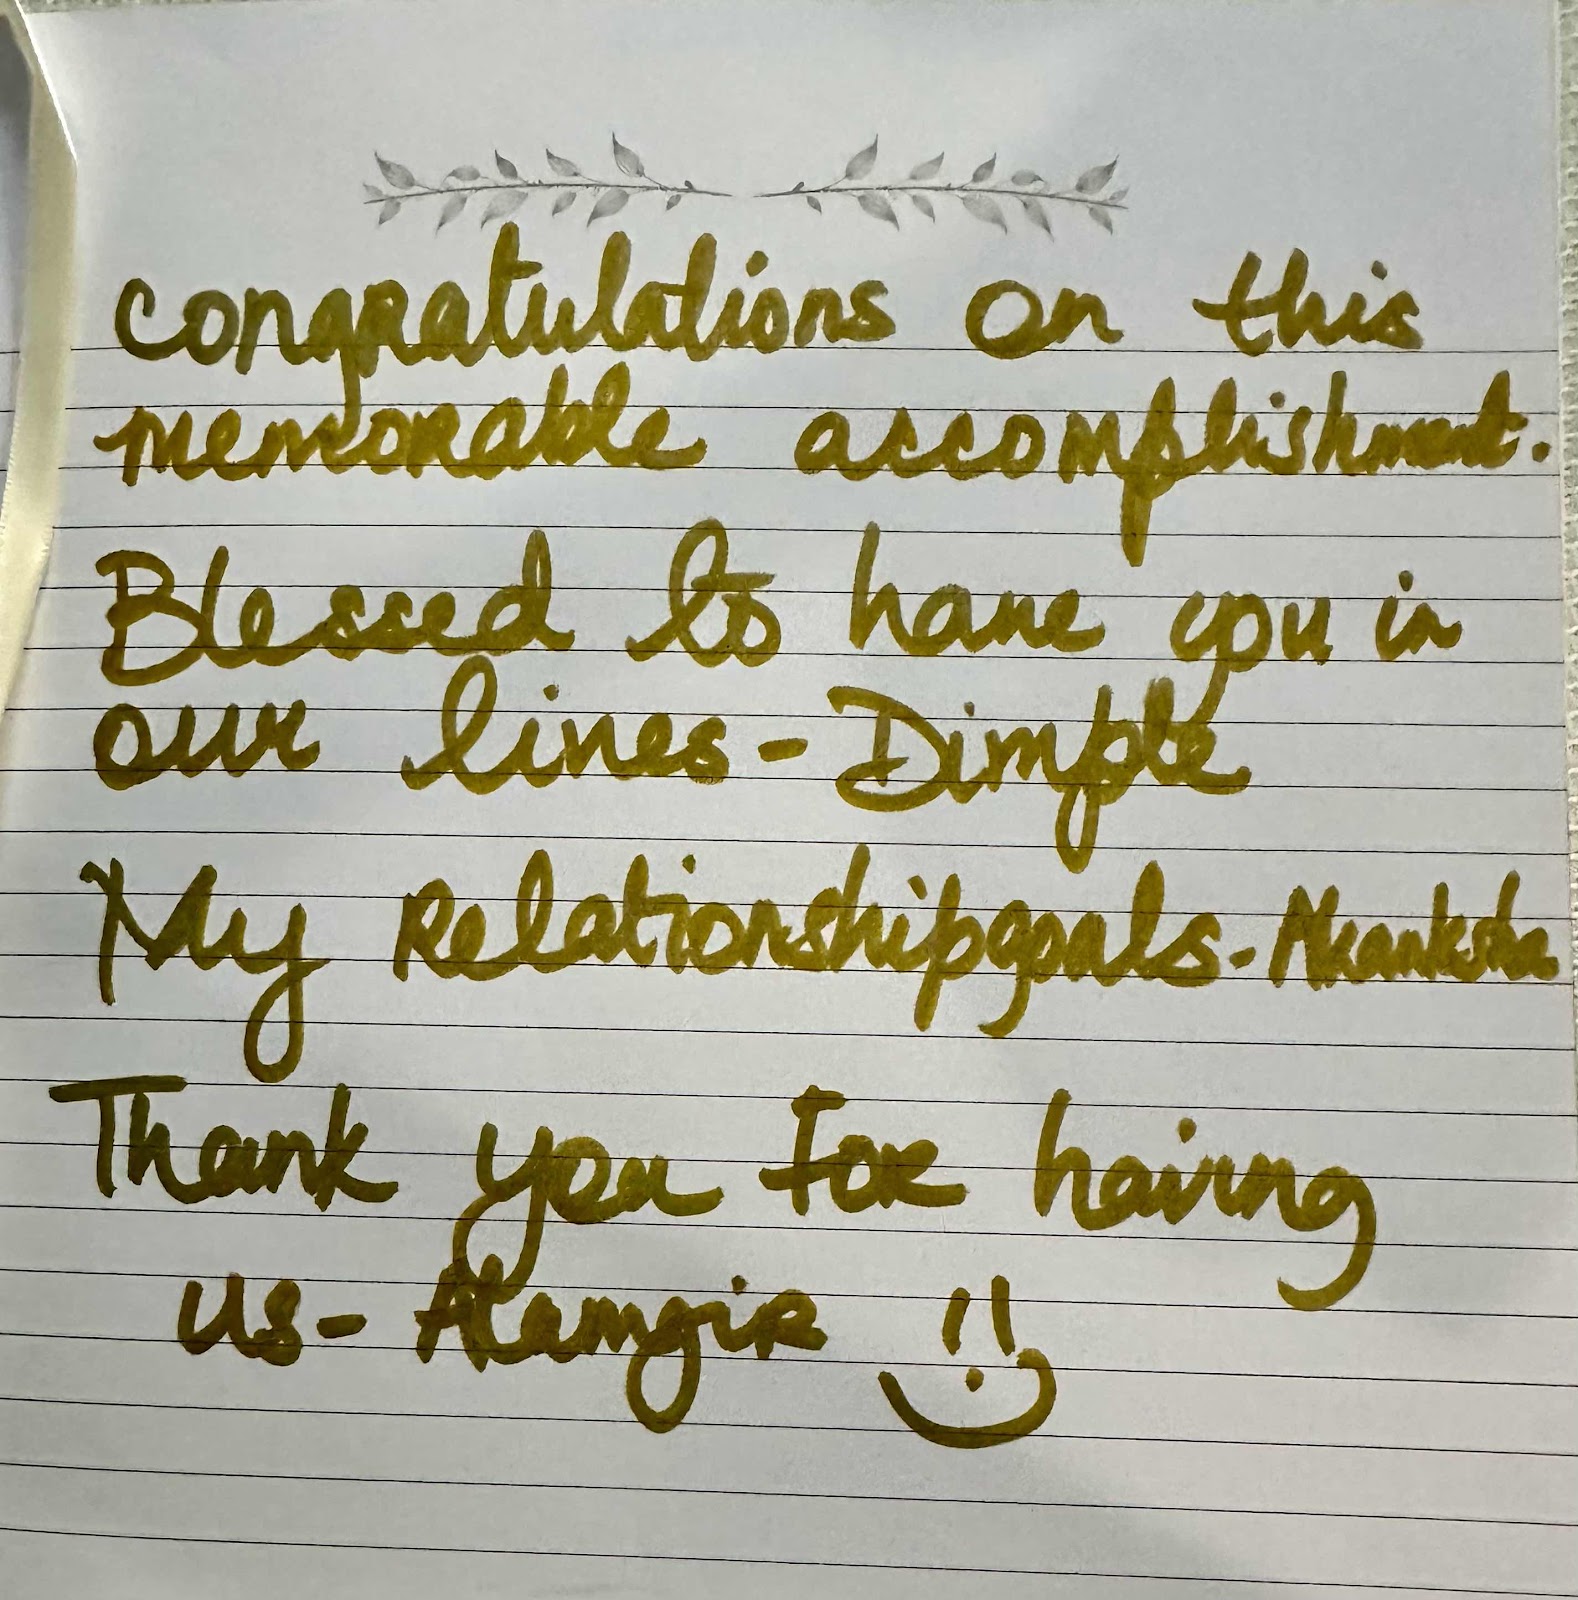 Congratulations on this
memorable accomplishment.
Blessed to have you in
our lives - Dimple
My Relationshipgoals - Akanksha
Thank you For having
us - Alamgir